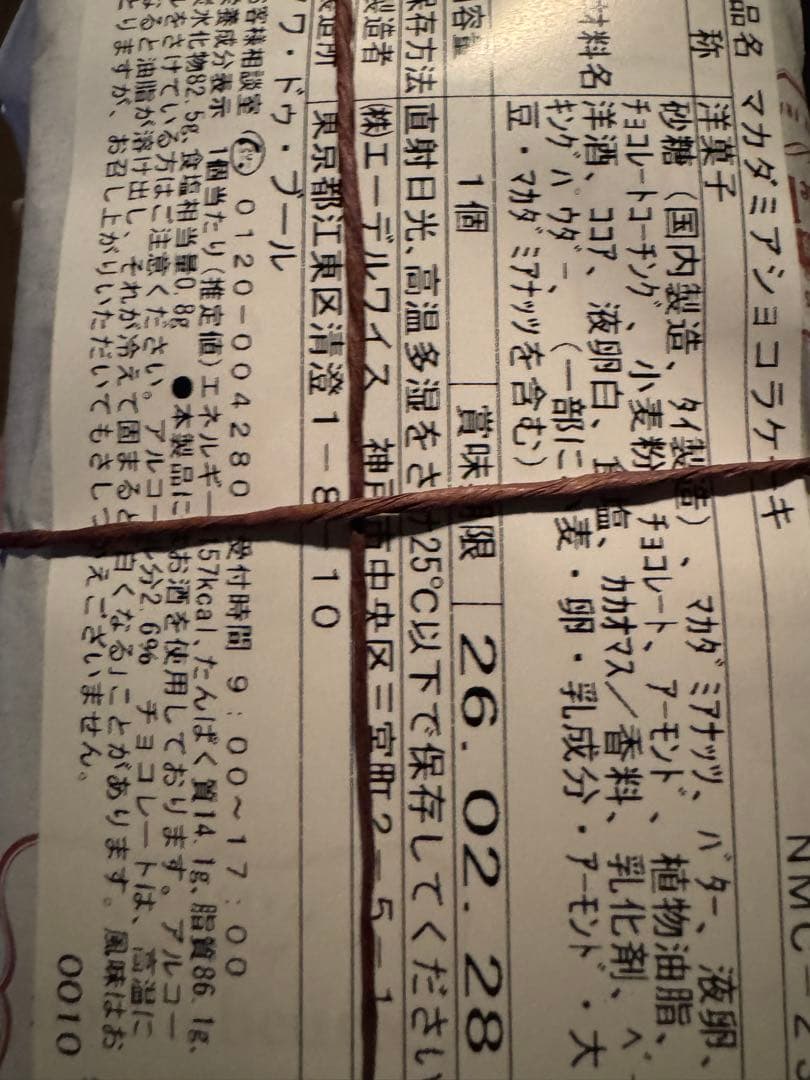 品名 マカダミアショコラケーキ
称 洋菓子
材料名 砂糖(国内製造、タイ製造)、マカダミアナッツ、バター、液卵、
チョコレートコーチング、小麦粉、チョコレート、アーモンド、植物油脂、
洋酒、ココア、液卵白、食塩、カカオマス/香料、乳化剤、ベー
キングパウダー、(一部に小麦・卵・乳成分・アーモンド・大
豆・マカダミアナッツを含む)
内容量 1個 賞味期限 26.02.28
保存方法 直射日光、高温多湿をさけ25℃以下で保存してください
製造者 ㈱エーデルワイス 神戸市中央区三宮町2-5-1
製造所 東京都江東区清澄1-8-10
ワ・ドゥ・ブール
お客様相談室 0120-004280 受付時間 9:00~17:00
栄養成分表示 1個当たり(推定値)エネルギー 57kcal、たんぱく質14.1g、脂質86.1g、
炭水化物82.5g、食塩相当量0.8g ●本製品にはお酒を使用しております。アルコー
ルをさけている方はご注意ください。アルコール分2.6% チョコレートは、高温に
なると油脂が溶け出し、それが冷えて固まると「白くなる」ことがあります。風味はお
とりますが、お召し上がりいただいてもさしつかえございません。
0010
NMC-2